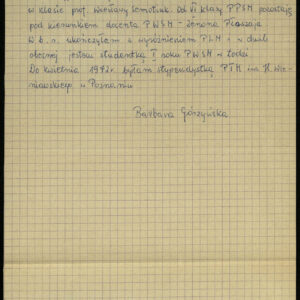 w klasie prof. Wiesławy Szmotiuk. Od VI klasy PPSM pozostaję
pod kierunkiem docenta PWSM - Zenona Płoszaja
W b. r. ukończyłam z wyróżnieniem PLM i w chwili
obecnej jestem studentką I roku PWSM w Łodzi
Do kwietnia 1972 r. byłam stypendystką PTM im. H. Wie-
niawskiego w Poznaniu
Barbara Górzyńska